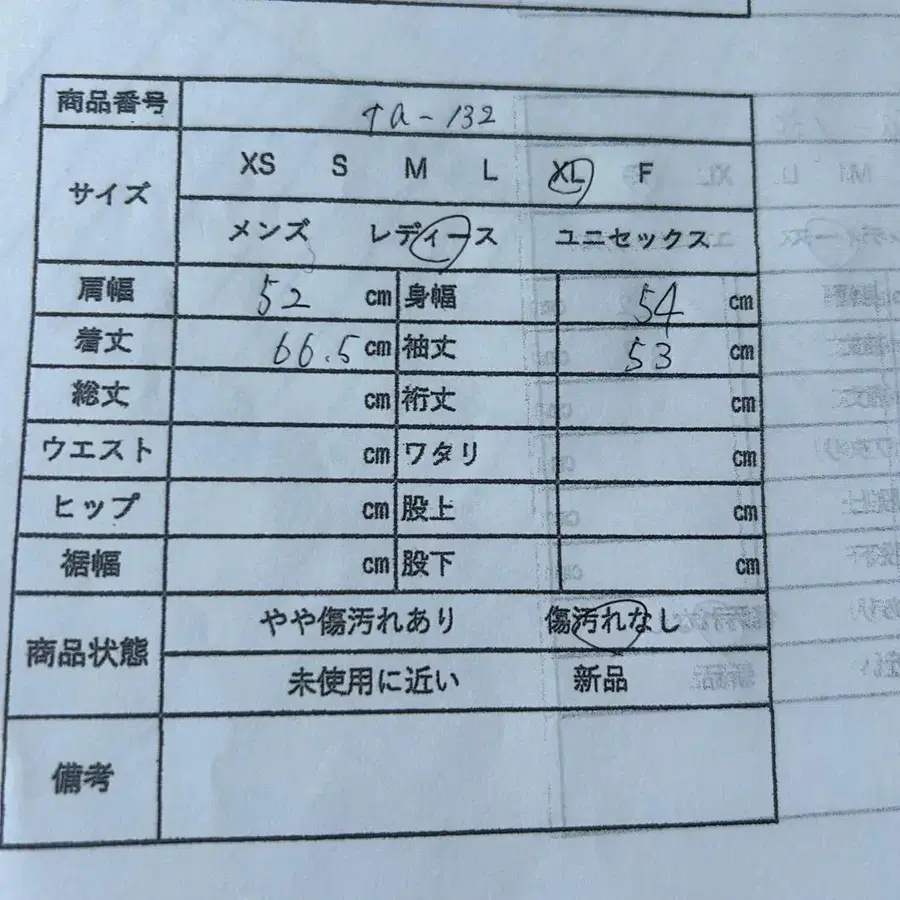 商品番号 ta-132
サイズ XS S M L XL F
メンズ レディース ユニセックス
肩幅 52 cm 身幅 54 cm
着丈 66.5 cm 袖丈 53 cm
総丈 cm 裄丈 cm
ウエスト cm ワタリ cm
ヒップ cm 股上 cm
裾幅 cm 股下 cm
商品状態 やや傷汚れあり 傷汚れなし
未使用に近い 新品
備考